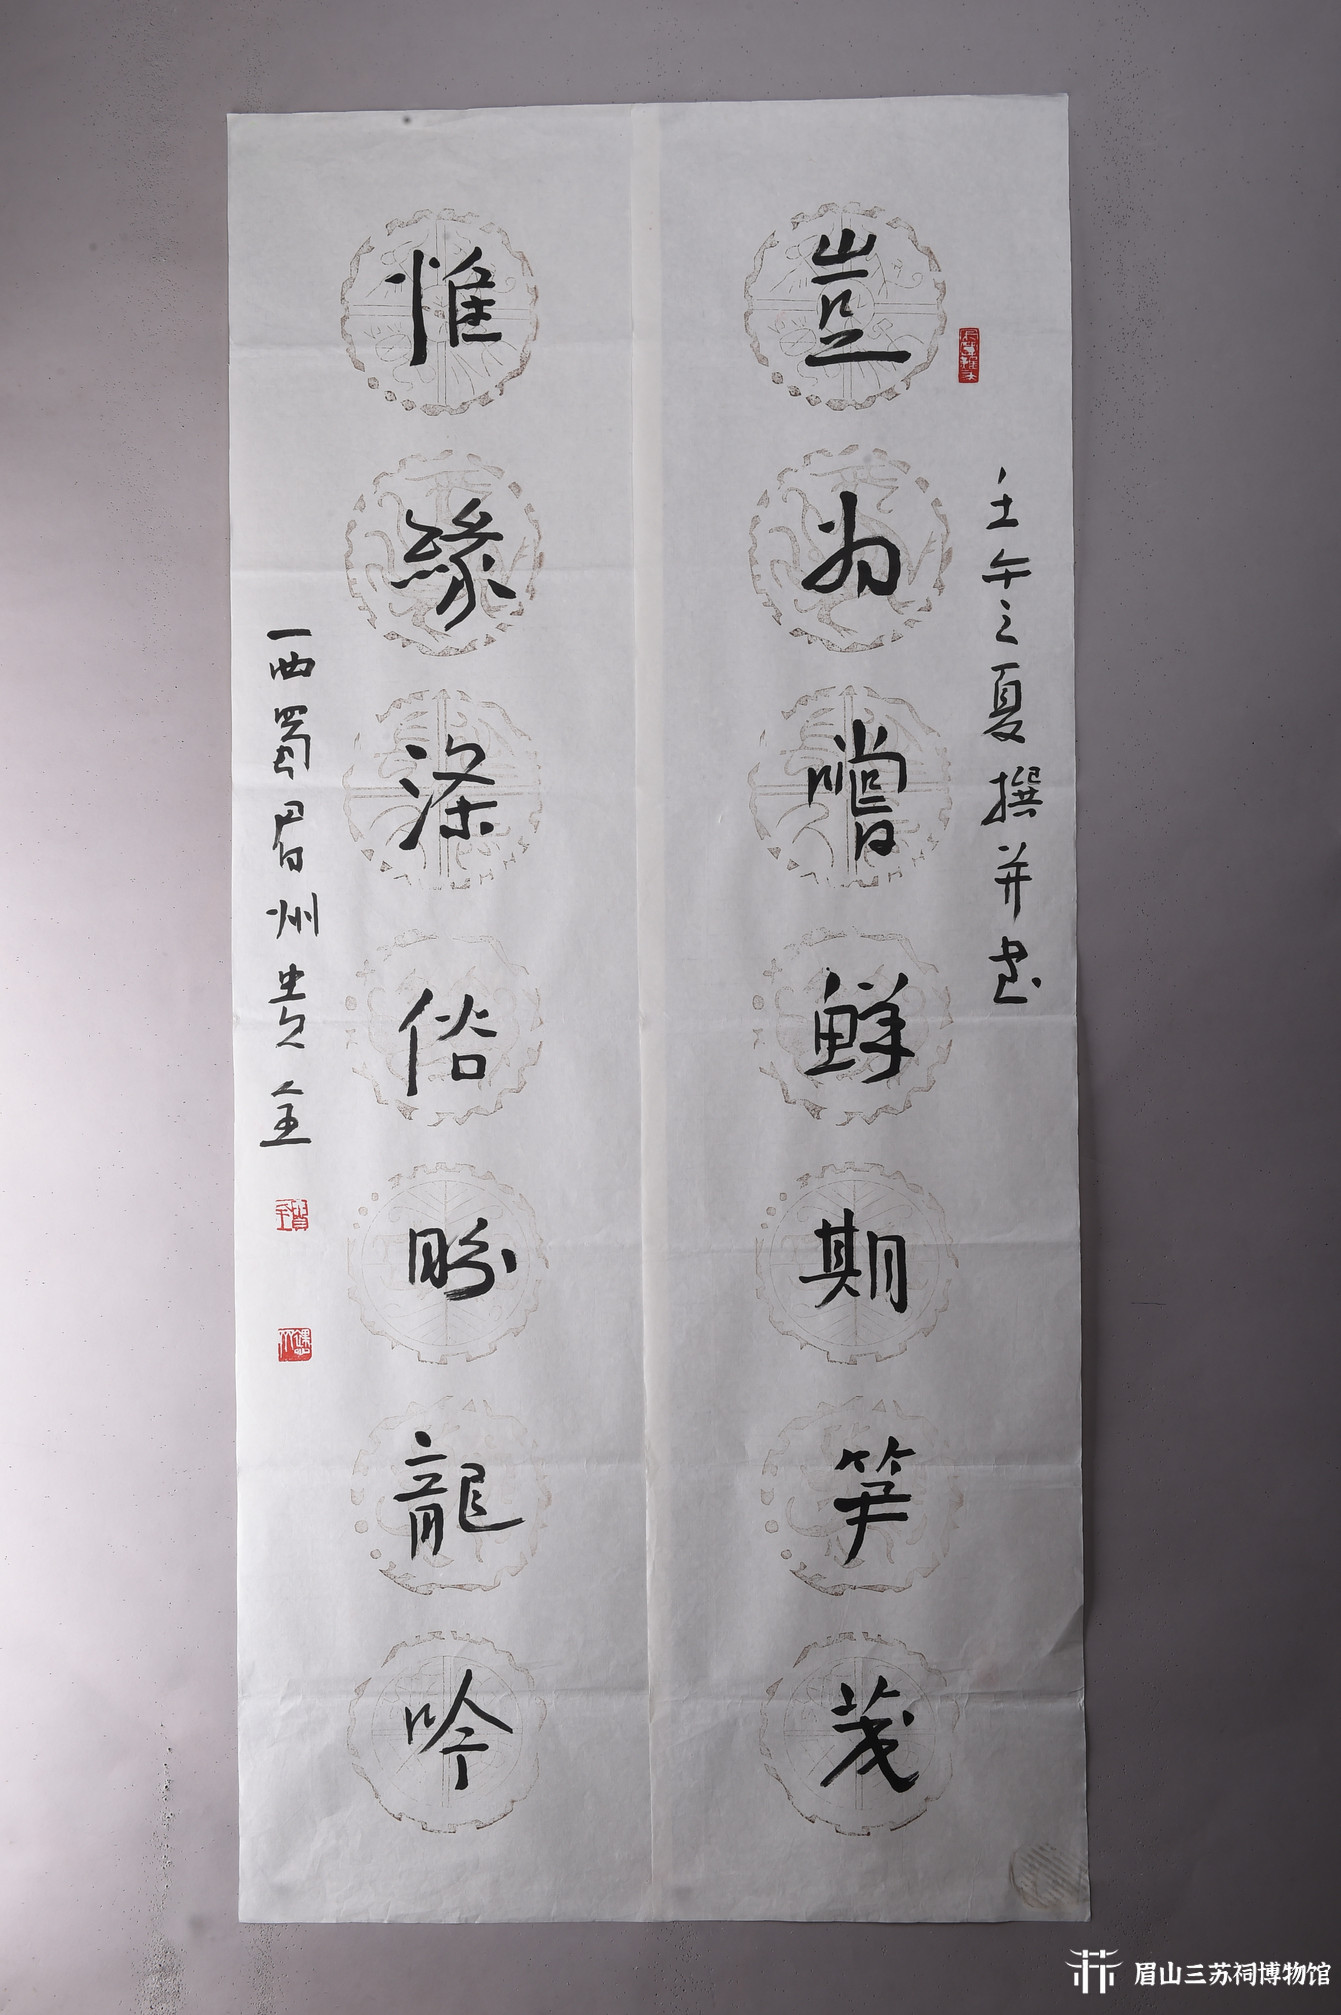 壬午之夏撰并书
豈为嚐鮮期笋茂
惟緣滌俗盼龍吟
西蜀眉州贵全
眉山三苏祠博物馆